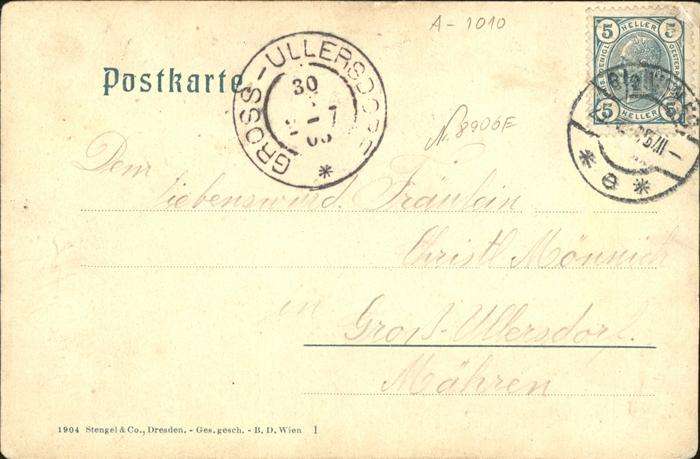 A-1010
Postkarte
GROSS-ULLERSDORF
30
-7
5 HELLER 5
5 HELLER 5
N. 8906E
* e *
Dem
liebenswürd. Fräulein
Christl Mönnich
in
Groß-Ullersdorf.
Mähren
1904 Stengel & Co., Dresden. - Ges. gesch. - B. D. Wien I